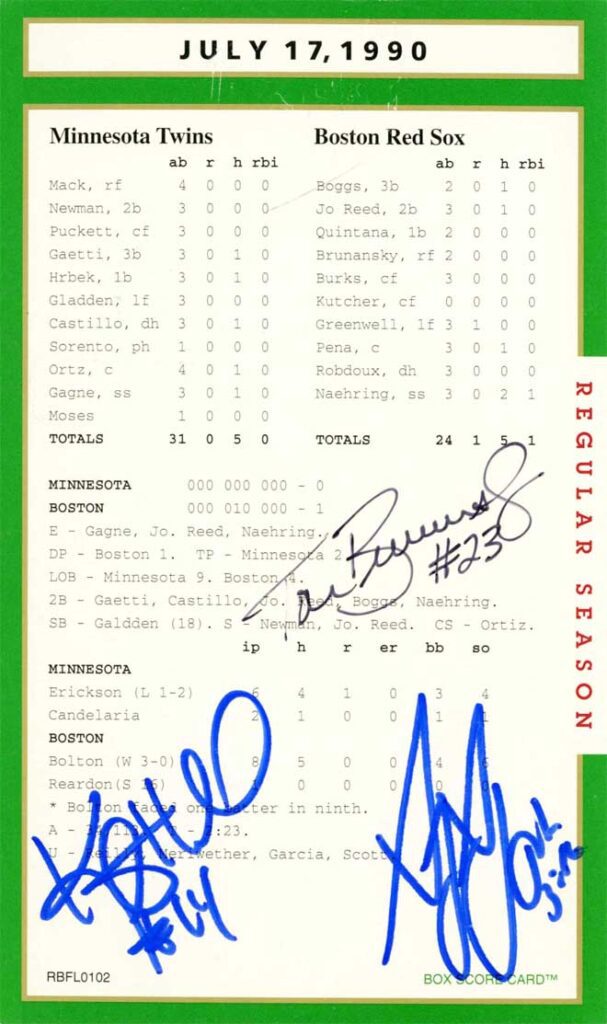 JULY 17, 1990
Minnesota Twins
ab r h rbi
Mack, rf 4 0 0 0
Newman, 2b 3 0 0 0
Puckett, cf 3 0 0 0
Gaetti, 3b 3 0 1 0
Hrbek, 1b 3 0 1 0
Gladden, lf 3 0 0 0
Castillo, dh 3 0 1 0
Sorento, ph 1 0 0 0
Ortz, c 4 0 1 0
Gagne, ss 3 0 1 0
Moses 1 0 0 0
TOTALS 31 0 5 0
Boston Red Sox
ab r h rbi
Boggs, 3b 2 0 1 0
Jo Reed, 2b 3 0 1 0
Quintana, 1b 2 0 0 0
Brunansky, rf 2 0 0 0
Burks, cf 3 0 0 0
Kutcher, cf 0 0 0 0
Greenwell, lf 3 1 0 0
Pena, c 3 0 1 0
Robdoux, dh 3 0 0 0
Naehring, ss 3 0 2 1
TOTALS 24 1 5 1
MINNESOTA 000 000 000 - 0
BOSTON 000 010 000 - 1
E - Gagne, Jo. Reed, Naehring.
DP - Boston 1. TP - Minnesota 2
LOB - Minnesota 9. Boston 4.
2B - Gaetti, Castillo, Jo. Reed, Boggs, Naehring.
SB - Galdden (18). S - Newman, Jo. Reed. CS - Ortiz.
#23
ip h r er bb so
MINNESOTA
Erickson (L 1-2) 6 4 1 0 3 4
Candelaria 2 1 0 0 1 1
BOSTON
Bolton (W 3-0) 8 5 0 0 4
Reardon(S 16) 1 0 0 0 0 0
* Bolton faced one batter in ninth.
A - T - 2:23.
U - Reilly, Meriwether, Garcia, Scott
RBFL0102
BOX SCORE CARD™
REGULAR SEASON